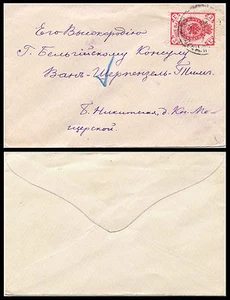 Его Высокородію
Г. Бельгійскому Консулу
Ванъ-Шерпензель-Тимъ.
Б. Никитская, д. Кн. Ме-
щерской.